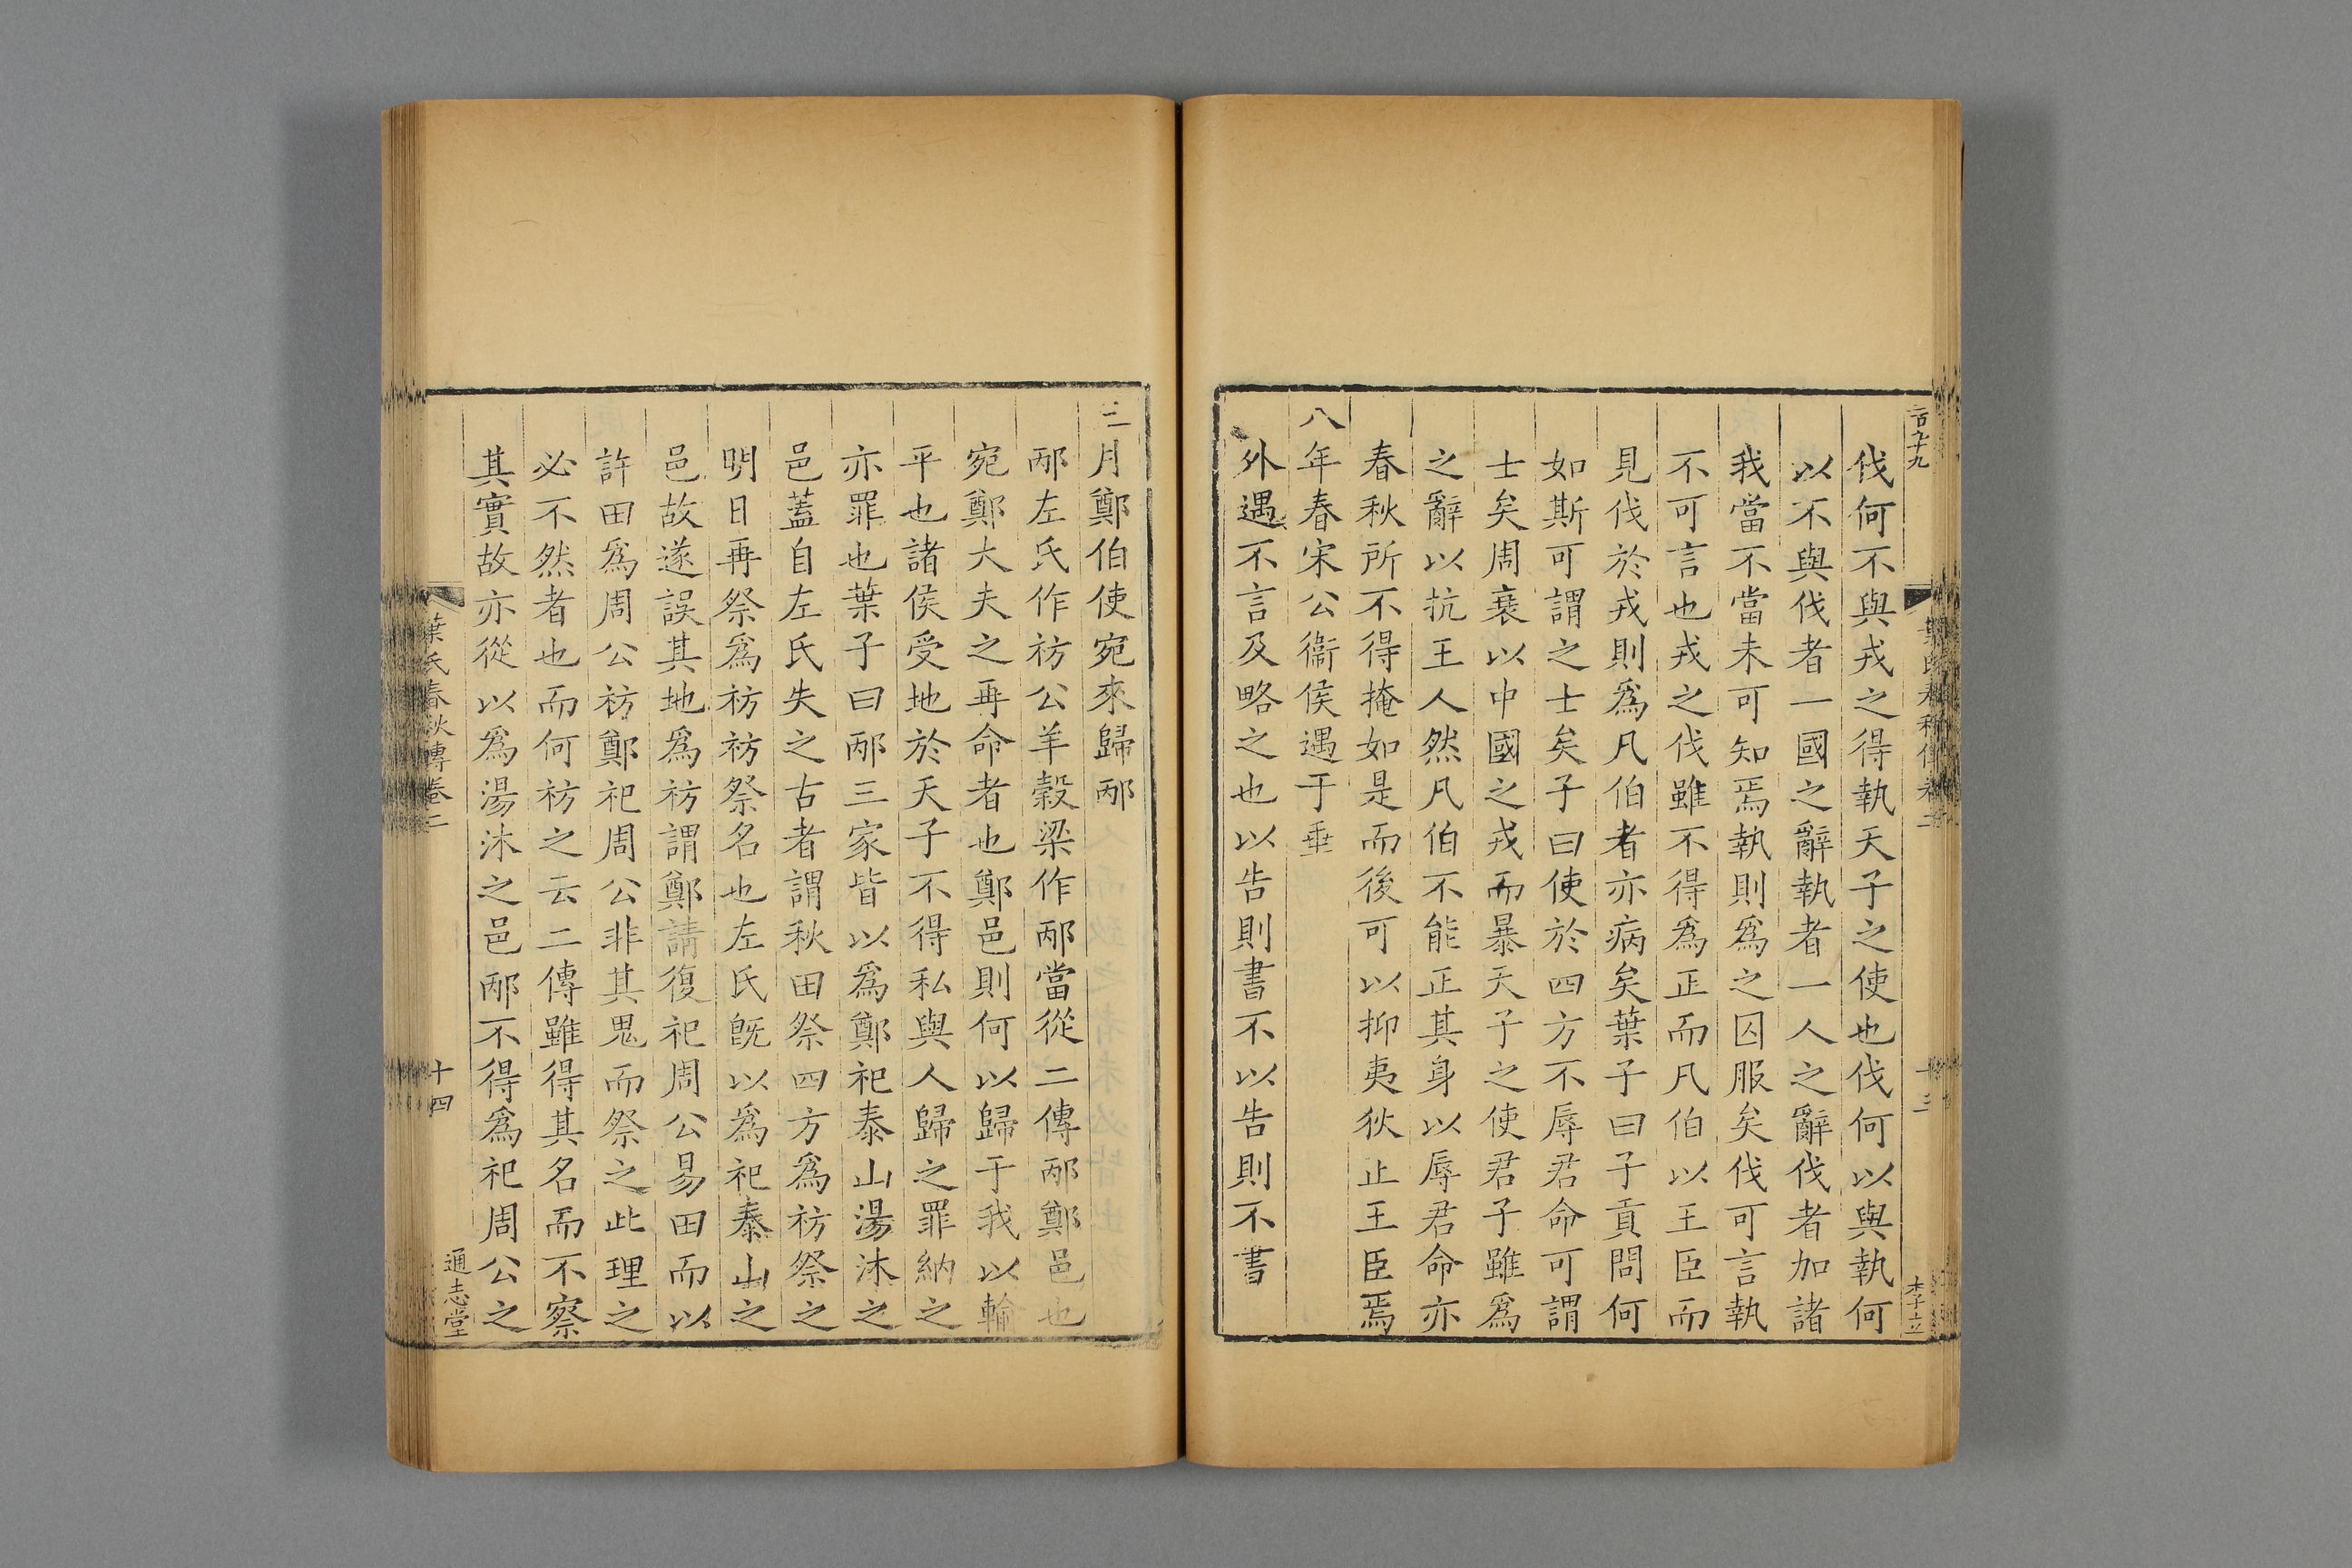 伐何不與戎之得執天子之使也伐何以與執何
以不與伐者一國之辭執者一人之辭伐者加諸
我當不當未可知焉執則爲之囚服矣伐可言執
不可言也戎之伐雖不得爲正而凡伯以王臣而
見伐於戎則爲凡伯者亦病矣葉子曰子貢問何
如斯可謂之士矣子曰使於四方不辱君命可謂
士矣周衰以中國之戎而暴天子之使君子雖爲
之辭以抗王人然凡伯不能正其身以辱君命亦
春秋所不得掩如是而後可以抑夷狄止王臣焉
八年春宋公衞侯遇于垂
外遇不言及略之也以告則書不以告則不書
三月鄭伯使宛來歸邴
邴左氏作祊公羊穀梁作邴當從二傳邴鄭邑也
宛鄭大夫之再命者也鄭邑則何以歸于我以輸
平也諸侯受地於天子不得私與人歸之罪納之
亦罪也葉子曰邴三家皆以爲鄭祀泰山湯沐之
邑蓋自左氏失之古者謂秋田祭四方爲祊祭之
明日再祭爲祊祊祭名也左氏旣以爲祀泰山之
邑故遂誤其地爲祊謂鄭請復祀周公昜田而以
許田爲周公祊鄭祀周公非其鬼而祭之此理之
必不然者也而何祊之云二傳雖得其名而不察
其實故亦從以爲湯沐之邑邴不得爲祀周公之
葉氏春秋傳卷二
十四
通志堂